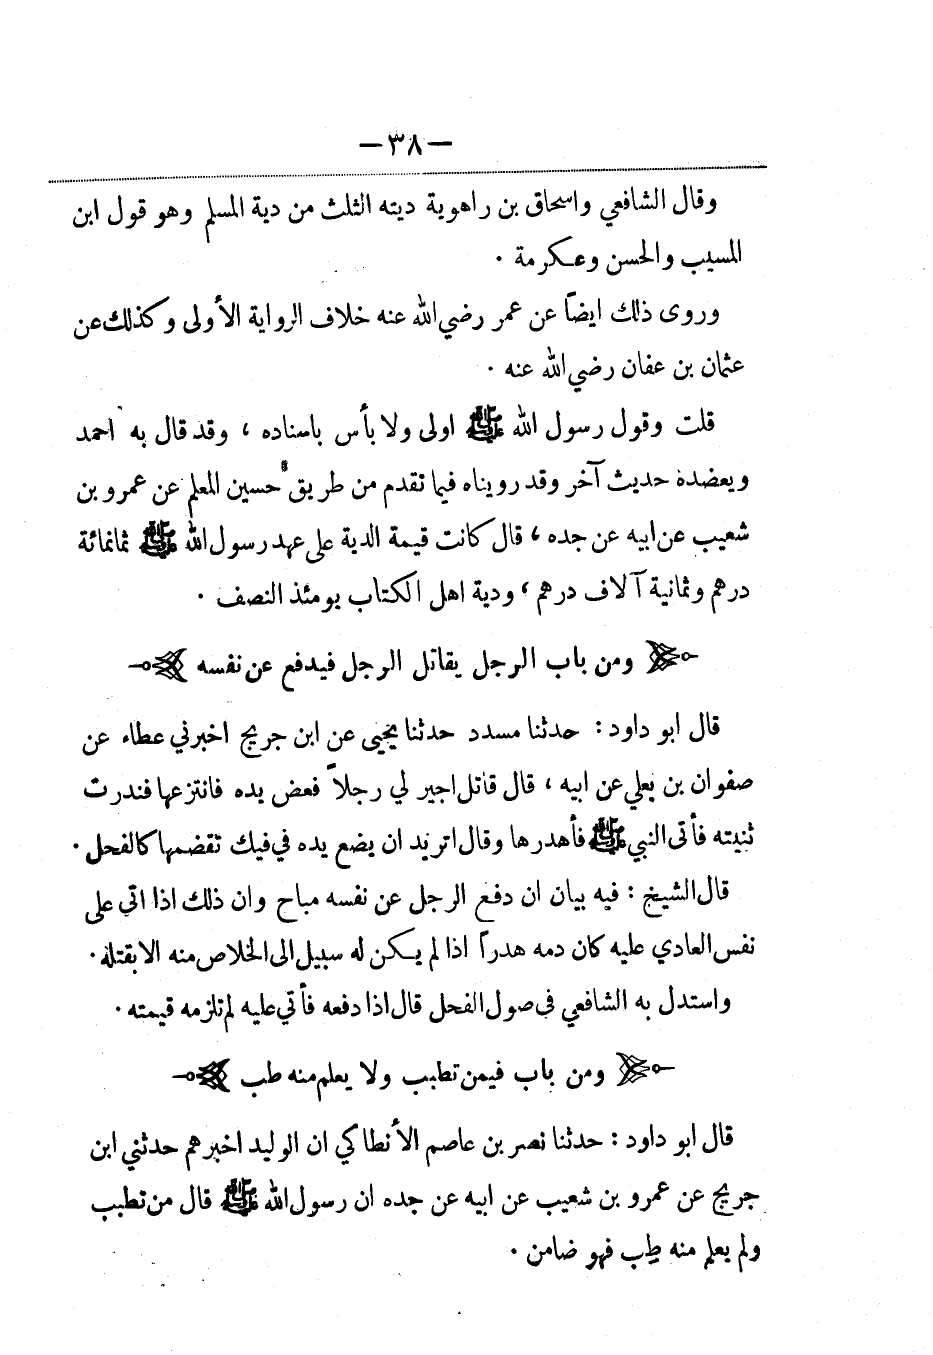 —٣٨—
وقال الشافعي واسحاق بن راهوية ديته الثلث من دية المسلم وهو قول ابن
المسيب والحسن وعكرمة ·
وروى ذلك ايضاً عن عمر رضي الله عنه خلاف الرواية الأولى وكذلك عن
عثمان بن عفان رضي الله عنه ·
قلت وقول رسول الله ﷺ اولى ولا بأس باسناده ، وقد قال به احمد
ويعضده حديث آخر وقد رويناه فيما تقدم من طريق حسين المعلم عن عمرو بن
شعيب عن ابيه عن جده ، قال كانت قيمة الدية على عهد رسول الله ﷺ ثمانمائة
درهم وثمانية آلاف درهم ، ودية اهل الكتاب يومئذ النصف ·
ومن باب الرجل يقاتل الرجل فيدفع عن نفسه
قال ابو داود : حدثنا مسدد حدثنا يحيى عن ابن جريج اخبرني عطاء عن
صفوان بن يعلي عن ابيه ، قال قاتل اجير لي رجلاً فعض يده فانتزعها فندرت
ثنيته فأتى النبي ﷺ فأهدرها وقال اتريد ان يضع يده في فيك تقضمها كالفحل ·
قال الشيخ : فيه بيان ان دفع الرجل عن نفسه مباح وان ذلك اذا اتي على
نفس العادي عليه كان دمه هدراً اذا لم يكن له سبيل الى الخلاص منه الا بقتله ·
واستدل به الشافعي في صول الفحل قال اذا دفعه فأتي عليه لم تلزمه قيمته ·
ومن باب فيمن تطبب ولا يعلم منه طب
قال ابو داود : حدثنا نصر بن عاصم الأنطاكي ان الوليد اخبرهم حدثني ابن
جريج عن عمرو بن شعيب عن ابيه عن جده ان رسول الله ﷺ قال من تطبب
ولم يعلم منه طب فهو ضامن ·